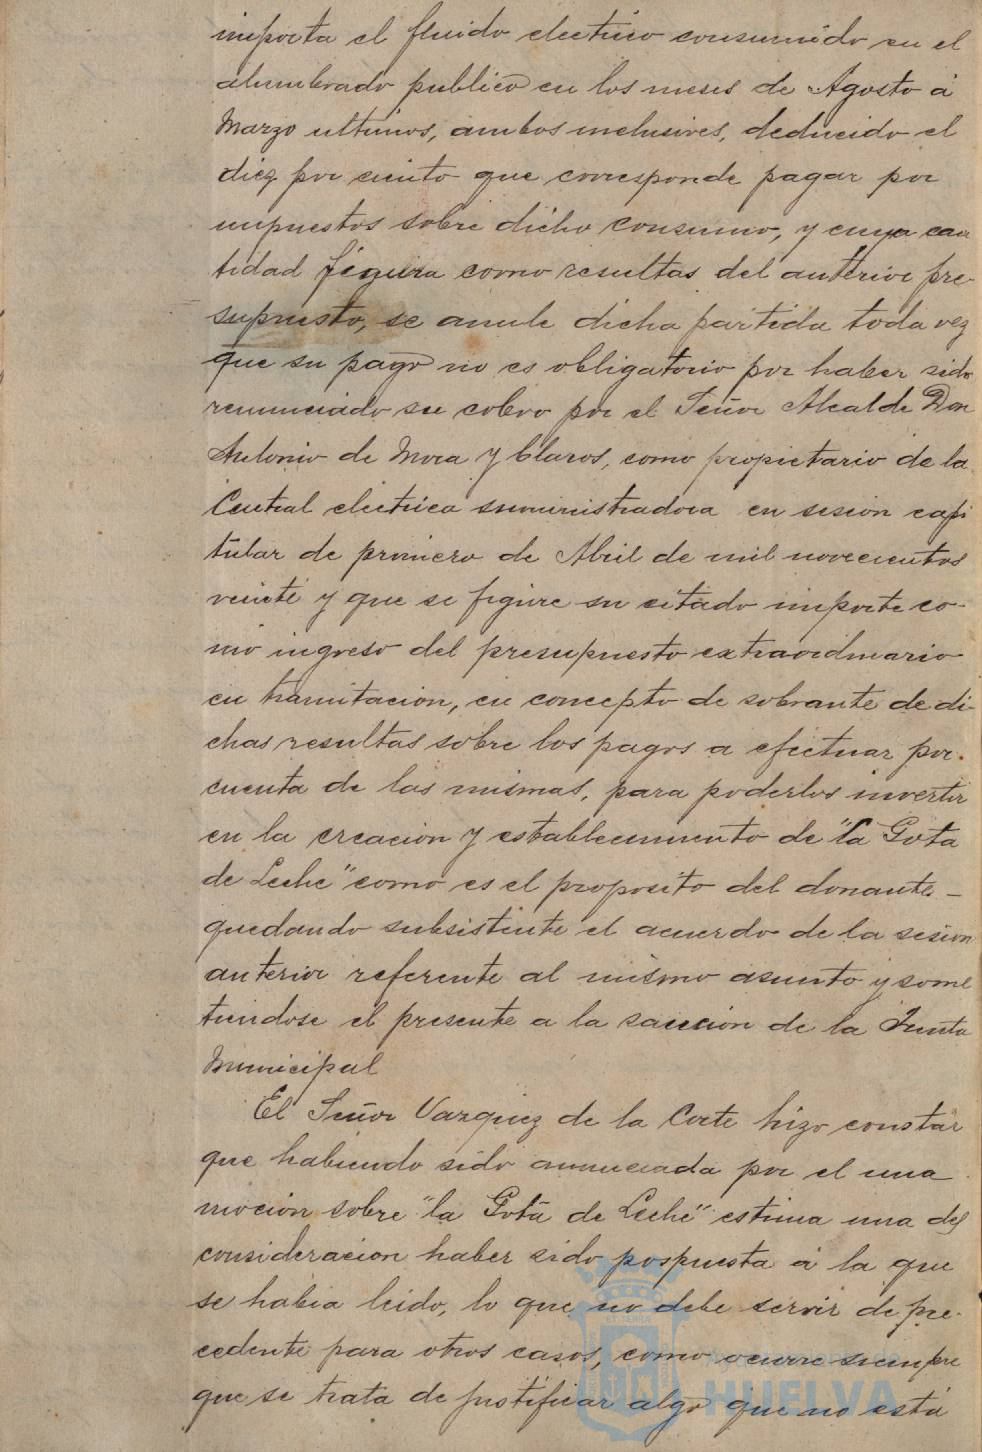 importa el fluido electrico consumido en el
alumbrado publico en los meses de Agosto á
Marzo ultimos, ambos inclusives, deducido el
diez por ciento que corresponde pagar por
impuestos sobre dicho consumo, y cuya can
tidad figura como resultas del anterior pre-
supuesto, se anule dicha partida toda vez
que su pago no es obligatorio por haber sido
renunciado su cobro por el Señor Alcalde Don
Antonio de Mora y Claros, como propietario de la
Central electrica suministradora en sesion capi
tular de primero de Abril de mil novecientos
veinte y que se figure su citado importe co-
mo ingreso del presupuesto extraordinario
en tramitacion, en concepto de sobrante de di-
chas resultas sobre los pagos a efectuar por
cuenta de las mismas, para poderlos invertir
en la creacion y establecimiento de "la Gota
de Leche" como es el proposito del donante -
quedando subsistente el acuerdo de la sesion
anterior referente al mismo asunto y some
tiendose el presente a la sancion de la Junta
Municipal
El Señor Vazquez de la Corte hizo constar
que habiendo sido anunciada por el una
mocion sobre "la Gota de Leche" estima una des
consideracion haber sido pospuesta á la que
se habia leido, lo que no debe servir de pre-
cedente para otros casos, como ocurre siempre
que se trata de justificar algo que no está
Ayuntamiento de
HUELVA